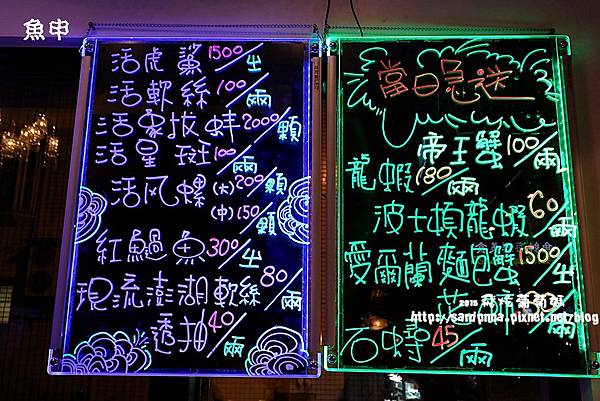 魚申
活虎鯊1500/尘
活軟絲100/兩
活象拔蚌2000/顆
活星斑100/兩
活风螺(大)200/顆
(中)150/顆
紅鰡魚300/尘
現流澎湖軟絲80/兩
透抽40/兩
當日急送
帝王蟹100/兩
龍蝦180/兩
波士頓龍蝦60/兩
愛爾蘭麵包蟹1500/尘
石蟳45/兩
http://sandynna.pixnet.net/blog